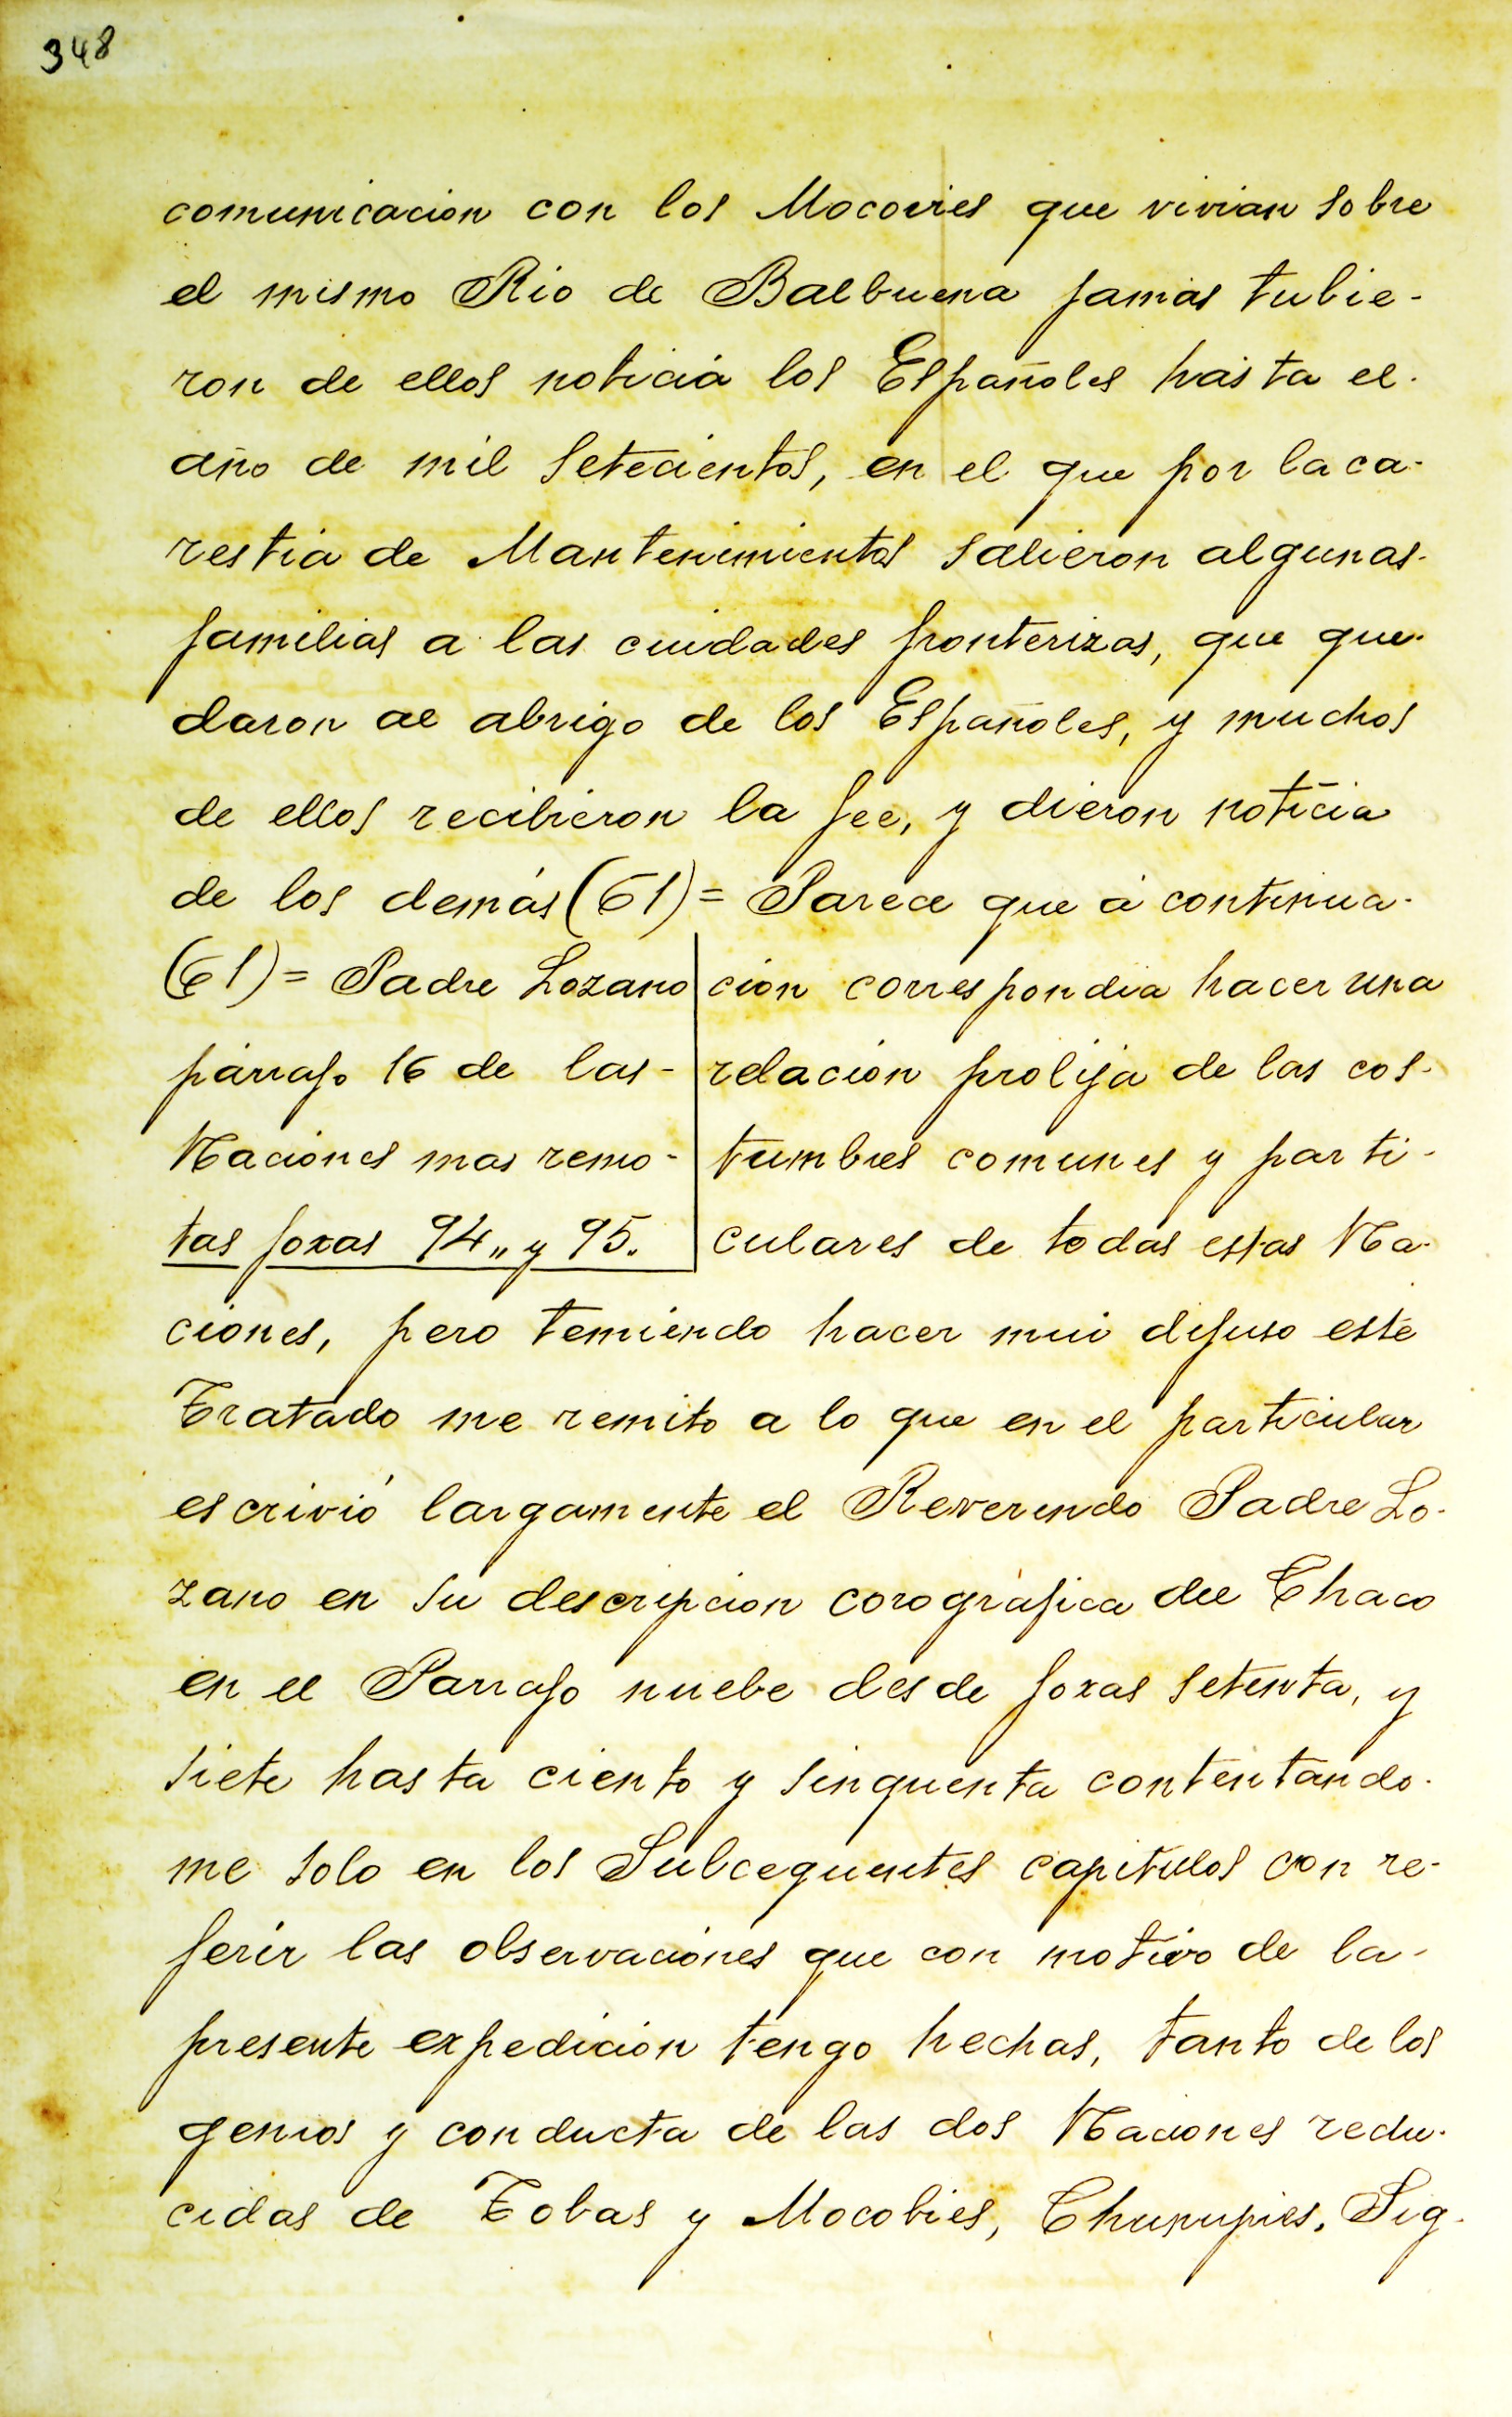 348
comunicacion con los Mocovies que vivian sobre
el mismo Rio de Balbuena jamas tubie-
ron de ellos noticia los Españoles hasta el
año de mil setecientos, en el que por la ca-
restia de Mantenimientos salieron algunas
familias a las cuidades fronterizas, que que-
daron al abrigo de los Españoles, y muchos
de ellos recibieron la fee, y dieron noticia
de los demás (61) = Parece que á continua-
(61) = Padre Lozano
párrafo 16 de las-
Naciones mas remo-
tas foxas 94„ y 95.
cion correspondia hacer una
relacion prolija de las cos-
tumbres comunes y parti-
culares de todas estas Na-
ciones, pero temiendo hacer mui difuso este
Tratado me remito a lo que en el particular
escrivió largamente el Reverendo Padre Lo-
zano en su descripcion corográfica del Chaco
en el Parrafo nuebe desde foxas setenta, y
siete hasta ciento y sinquenta contentando-
me solo en los Subcequentes capitulos con re-
ferir las observaciones que con motivo de la-
presente expedicion tengo hechas, tanto de los
genios y conducta de las dos Naciones redu-
cidas de Tobas y Mocobies, Chunupies, Sig-